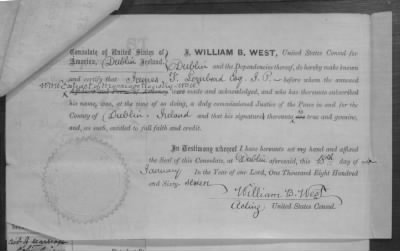 Consulate of United States of
America, Dublin Ireland.
I, WILLIAM B. WEST, United States Consul for
Dublin and the Dependencies thereof, do hereby make known
and certify that James F. Lombard Esq J. P. before whom the annexed
Extract of Marriage Registry
made and acknowledged, and who has thereunto subscribed
his name, was, at the time of so doing, a duly commissioned Justice of the Peace in and for the
County of Dublin - Ireland and that his signature thereunto is true and genuine,
and, as such, entitled to full faith and credit.
In Testimony whereof I have hereunto set my hand and affixed
the Seal of this Consulate, at Dublin aforesaid, this day of
January In the Year of our Lord, One Thousand Eight Hundred
and Sixty-
William B West
Acting, United States Consul.